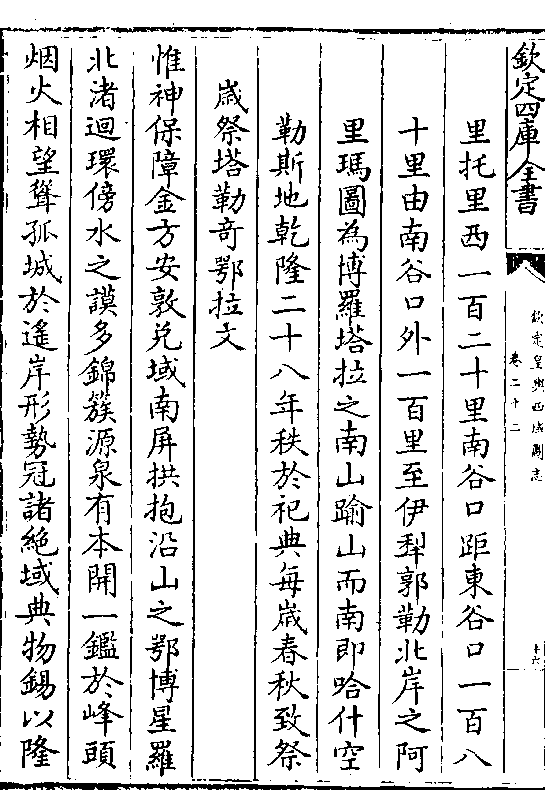 欽定四庫全書
欽定皇輿西域圖志
卷二十二
十六
里托里西一百二十里南谷口距東谷口一百八
十里由南谷口外一百里至伊犁郭勒北岸之阿
里瑪圖為博羅塔拉之南山踰山而南即哈什空
勒斯地乾隆二十八年秩於祀典每嵗春秋致祭
嵗祭塔勒奇鄂拉文
惟神保障金方安敦兑域南屏拱抱沿山之鄂博星羅
北渚迴環傍水之謨多錦簇源泉有本開一鑑於峰頭
烟火相望聳孤城於遙岸形勢冠諸絶域典物錫以隆